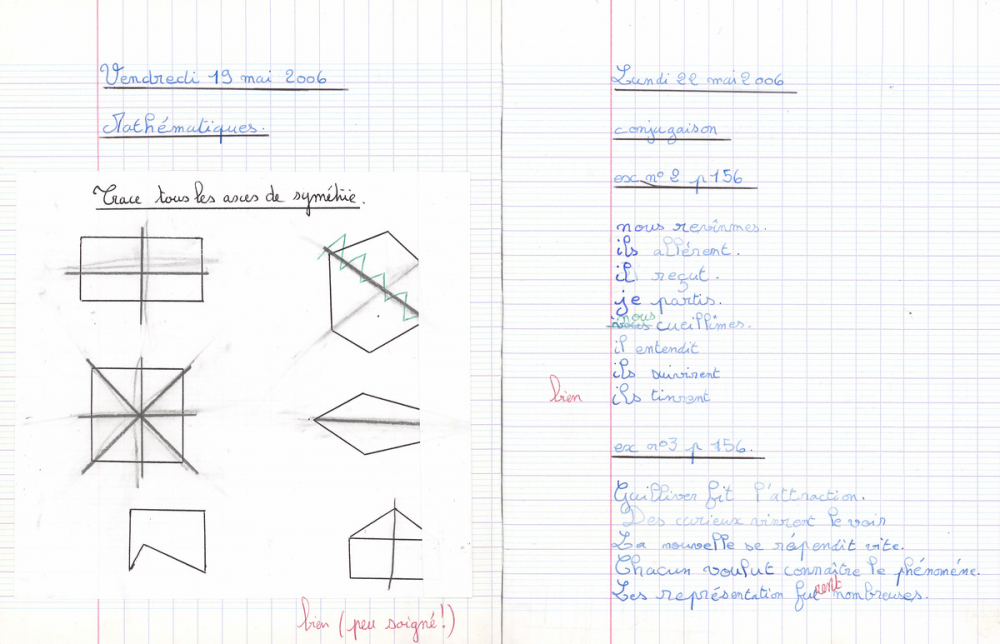 Vendredi 19 mai 2006
Mathématiques.
Trace tous les axes de symétrie.
bien (peu soigné!)
Lundi 22 mai 2006
conjugaison
ex n° 2 p 156
nous revînmes.
ils allèrent.
il reçut.
je partis.
nous cueillîmes.
il entendit
ils suivirent
bien ils tinrent
ex n°3 p 156.
Guilliver fit l'attraction.
Des curieux vinrent le voir
La nouvelle se répendit vite.
Chacun voulut connaître le phénomène.
Les représentation furent nombreuses.